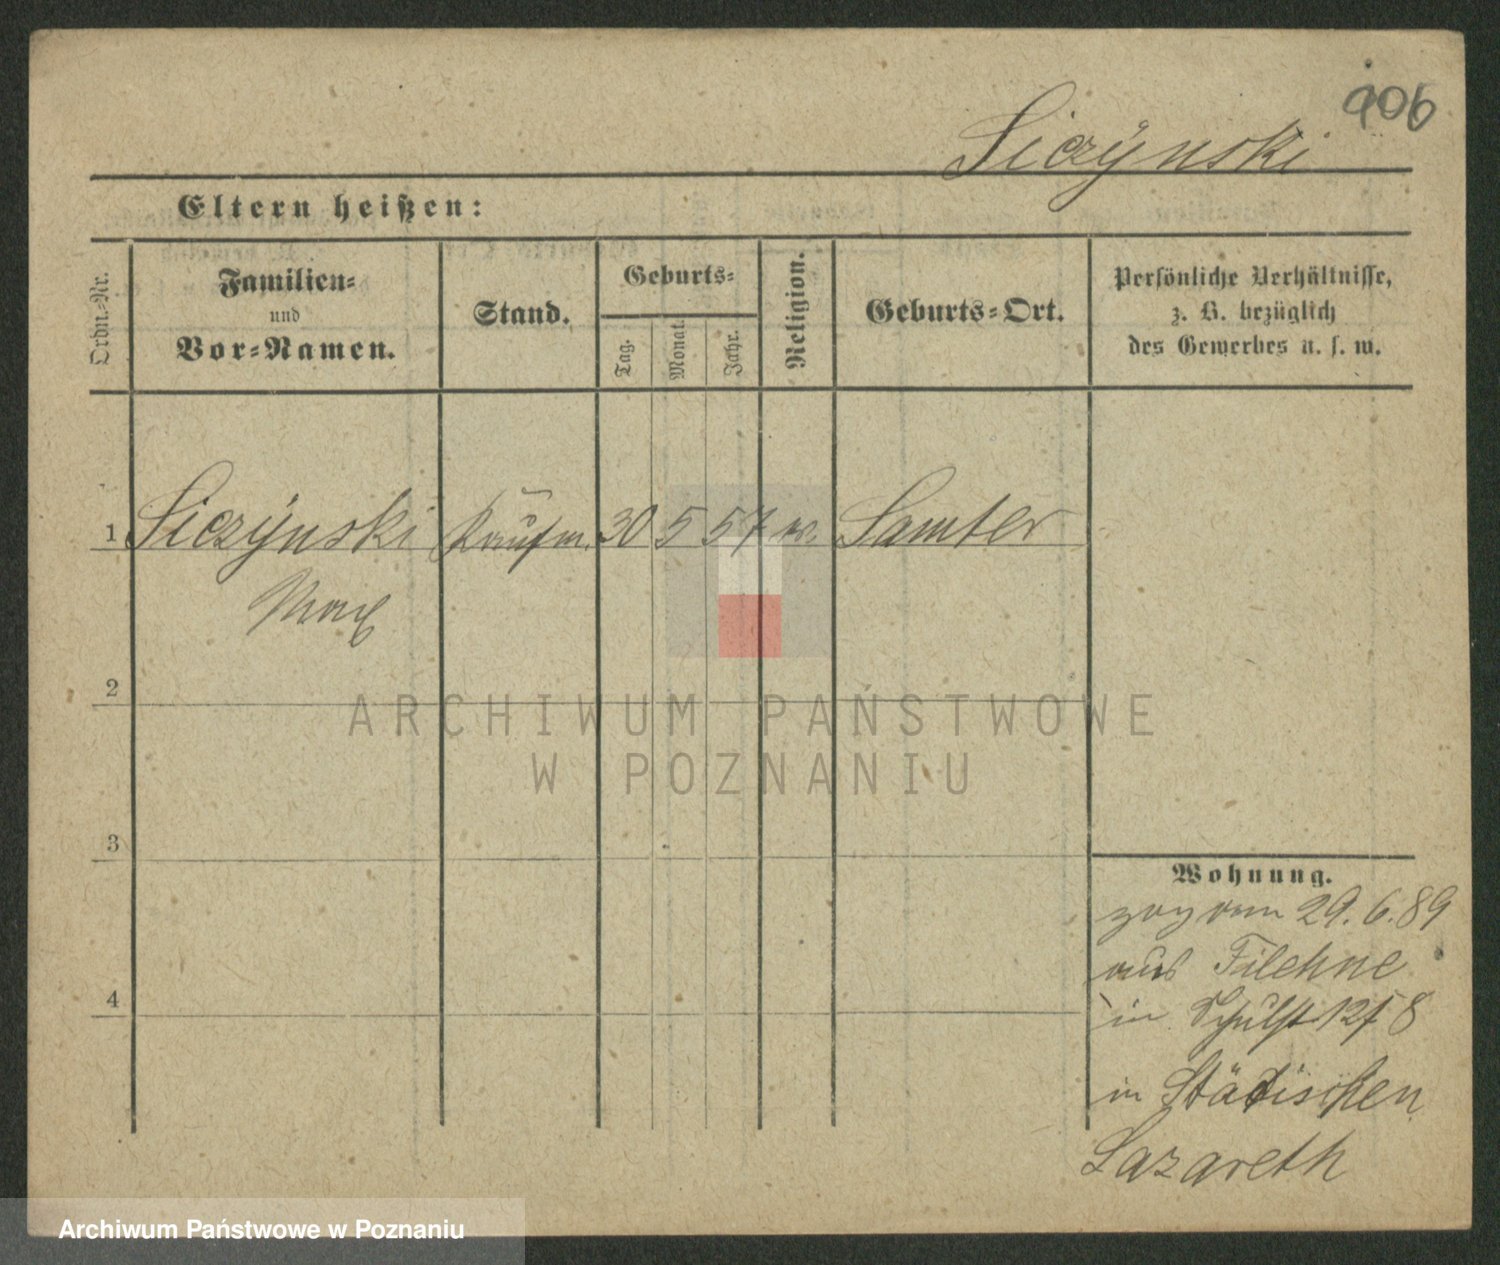 906
Siczÿnski
Eltern heißen:
Ordn.-Nr.
Familien-
und
Vor-Namen.
Stand.
Geburts-
Tag.
Monat.
Jahr.
Religion.
Geburts-Ort.
Persönliche Verhältnisse,
z. B. bezüglich
des Gewerbes u. s. w.
1 Siczÿnski Kaufm. 30 5 57 Samter
Max
2
3
4
Wohnung.
zog am 29. 6. 89
aus Filehne
in Schulst 12/8
in Städtischen
Lazareth
ARCHIWUM PAŃSTWOWE
W POZNANIU
Archiwum Państwowe w Poznaniu